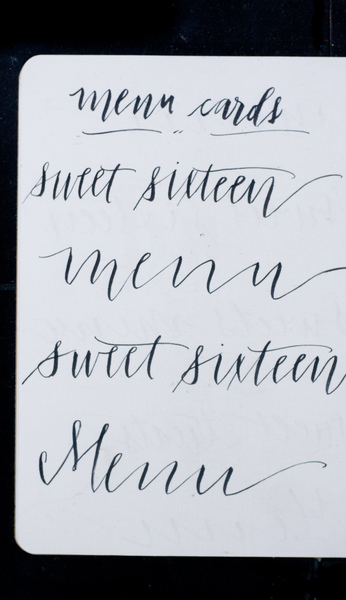 menu cards
sweet sixteen
menu
sweet sixteen
Menu